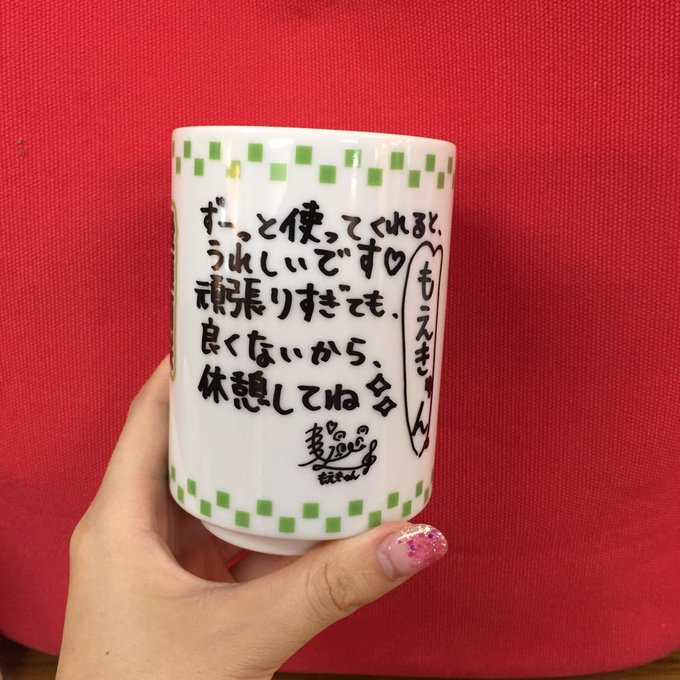 ずーっと使ってくれると、
うれしいです♡
頑張りすぎても、
良くないから、
休憩してね
もえきゅん
もえきゅん